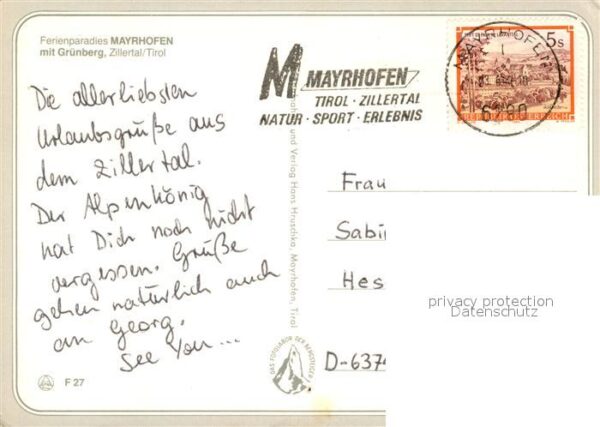 Ferienparadies MAYRHOFEN
mit Grünberg, Zillertal/Tirol
Die allerliebsten
Urlaubsgrüße aus
dem Zillertal.
Der Alpenkönig
hat Dich noch nicht
vergessen. Grüße
gehen natürlich auch
an Georg.
See You ...
F 27
M MAYRHOFEN
TIROL · ZILLERTAL
NATUR · SPORT · ERLEBNIS
MAYRHOFEN
6290
5s
REPUBLIK ÖSTERREICH
und Verlag Hans Hruschka, Mayrhofen, Tirol
DAS FOTOLABOR DER BERGSTEIGER
Frau
Sabi
Hes
D-637
privacy protection
Datenschutz